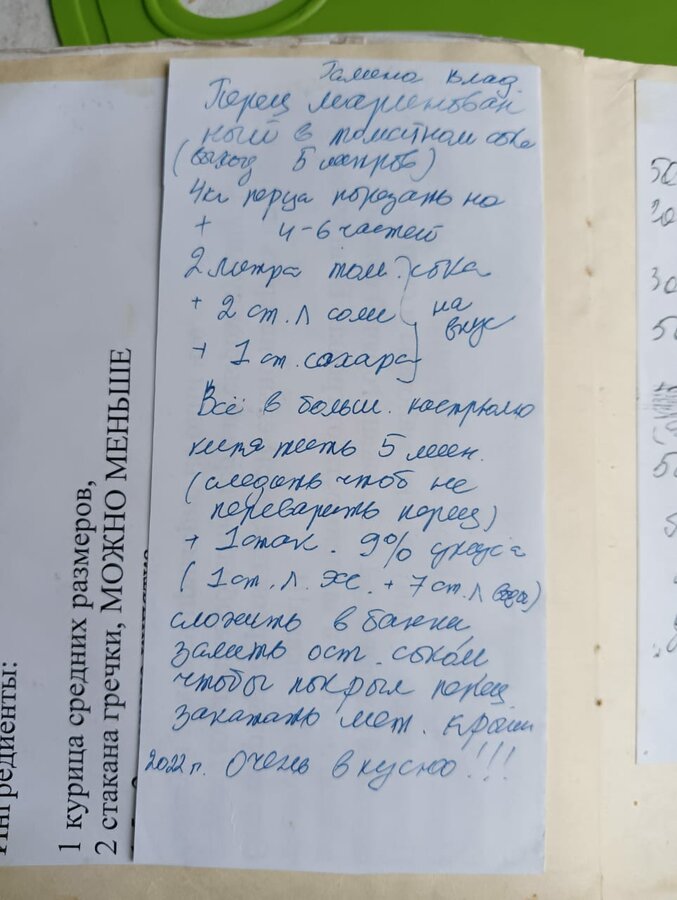 Тамена Влад.
Перец маринован
ный в томатном соке
(выход 5 литров)
4кг перца порезать на
+ 4-6 частей
2 литра том. сока
+ 2 ст. л соли
на
вкус
+ 1 ст. сахара
Всё в больш. кострюлю
кипятить 5 мин.
(следить чтоб не
переварить перец)
+ 1 стак. 9% уксуса
(1 ст. л. эс. + 7 ст. л воды)
сложить в банки
залить ост. соком
чтобы покрыл перец
закатать мет. крыш
2022 г. Очень вкусно!!!
Ингредиенты:
1 курица средних размеров,
2 стакана гречки, МОЖНО МЕНЬШЕ